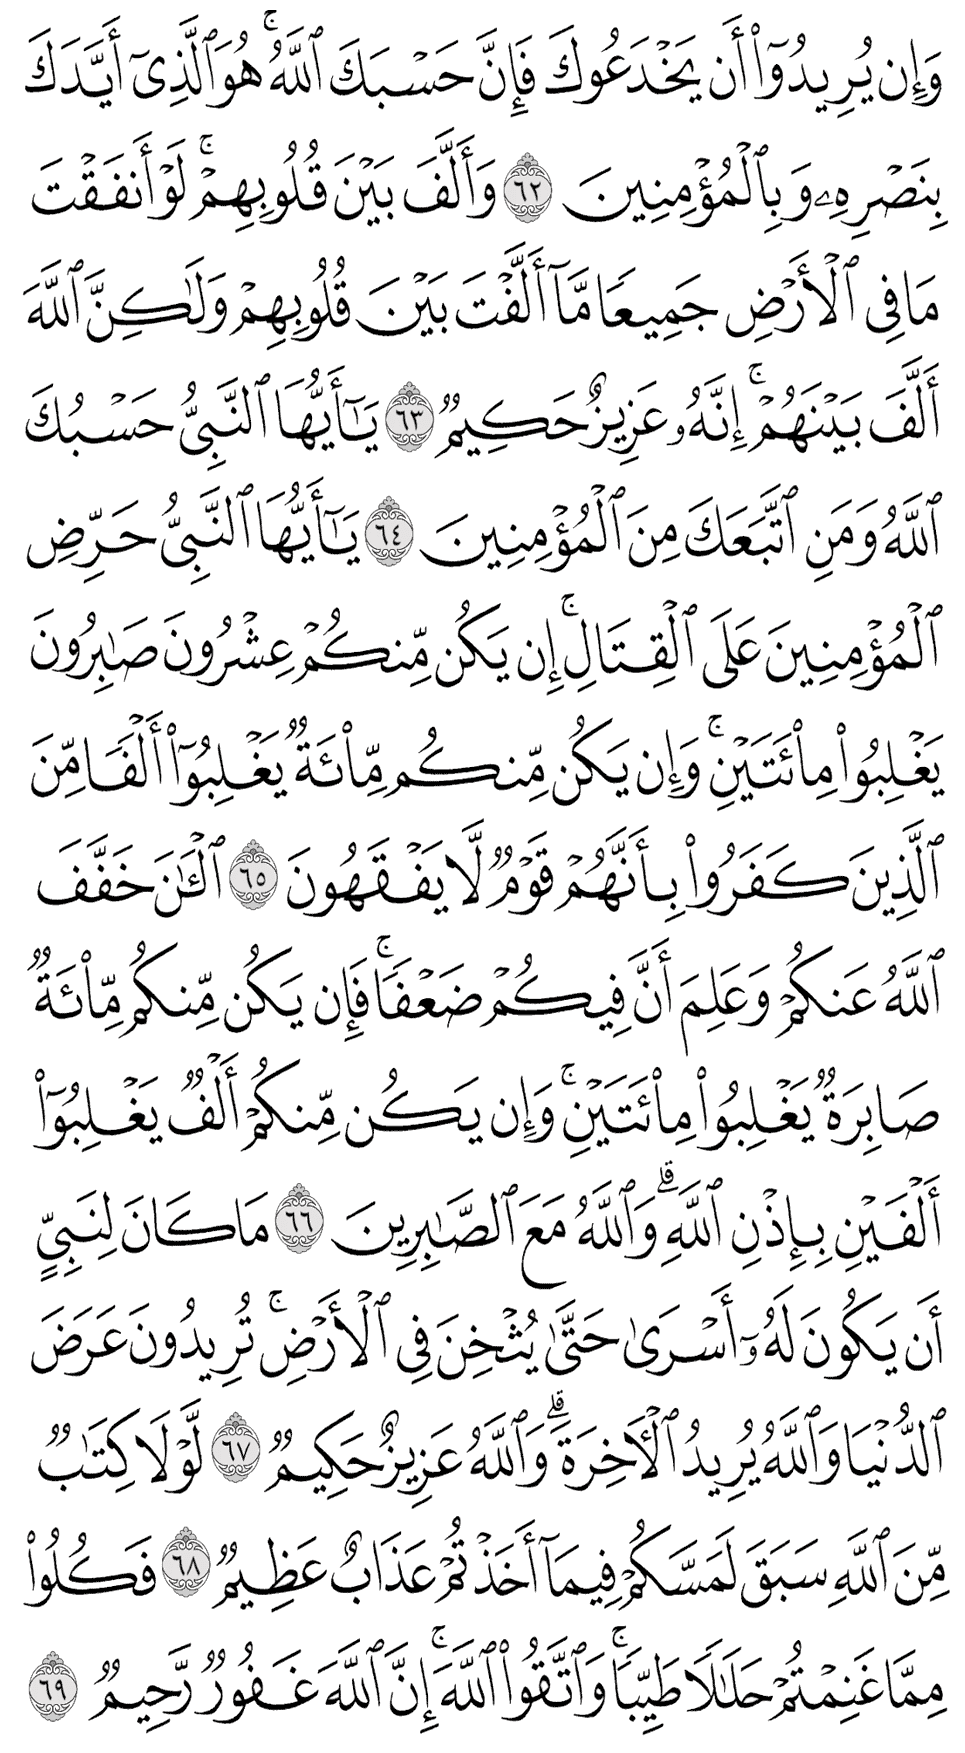 وَإِن يُرِيدُوٓاْ أَن يَخۡدَعُوكَ فَإِنَّ حَسۡبَكَ ٱللَّهُۚ هُوَ ٱلَّذِيٓ أَيَّدَكَ
بِنَصۡرِهِۦ وَبِٱلۡمُؤۡمِنِينَ ٦٢ وَأَلَّفَ بَيۡنَ قُلُوبِهِمۡۚ لَوۡ أَنفَقۡتَ
مَا فِي ٱلۡأَرۡضِ جَمِيعٗا مَّآ أَلَّفۡتَ بَيۡنَ قُلُوبِهِمۡ وَلَٰكِنَّ ٱللَّهَ
أَلَّفَ بَيۡنَهُمۡۚ إِنَّهُۥ عَزِيزٌ حَكِيمٞ ٦٣ يَٰٓأَيُّهَا ٱلنَّبِيُّ حَسۡبُكَ
ٱللَّهُ وَمَنِ ٱتَّبَعَكَ مِنَ ٱلۡمُؤۡمِنِينَ ٦٤ يَٰٓأَيُّهَا ٱلنَّبِيُّ حَرِّضِ
ٱلۡمُؤۡمِنِينَ عَلَى ٱلۡقِتَالِۚ إِن يَكُن مِّنكُمۡ عِشۡرُونَ صَٰبِرُونَ
يَغۡلِبُواْ مِاْئَتَيۡنِۚ وَإِن يَكُن مِّنكُم مِّاْئَةٞ يَغۡلِبُوٓاْ أَلۡفٗا مِّنَ
ٱلَّذِينَ كَفَرُواْ بِأَنَّهُمۡ قَوۡمٞ لَّا يَفۡقَهُونَ ٦٥ ٱلۡـَٰٔنَ خَفَّفَ
ٱللَّهُ عَنكُمۡ وَعَلِمَ أَنَّ فِيكُمۡ ضَعۡفٗاۚ فَإِن يَكُن مِّنكُم مِّاْئَةٞ
صَابِرَةٞ يَغۡلِبُواْ مِاْئَتَيۡنِۚ وَإِن يَكُن مِّنكُمۡ أَلۡفٞ يَغۡلِبُوٓاْ
أَلۡفَيۡنِ بِإِذۡنِ ٱللَّهِۗ وَٱللَّهُ مَعَ ٱلصَّٰبِرِينَ ٦٦ مَا كَانَ لِنَبِيٍّ
أَن يَكُونَ لَهُۥٓ أَسۡرَىٰ حَتَّىٰ يُثۡخِنَ فِي ٱلۡأَرۡضِۚ تُرِيدُونَ عَرَضَ
ٱلدُّنۡيَا وَٱللَّهُ يُرِيدُ ٱلۡأٓخِرَةَۗ وَٱللَّهُ عَزِيزٌ حَكِيمٞ ٦٧ لَّوۡلَا كِتَٰبٞ
مِّنَ ٱللَّهِ سَبَقَ لَمَسَّكُمۡ فِيمَآ أَخَذۡتُمۡ عَذَابٌ عَظِيمٞ ٦٨ فَكُلُواْ
مِمَّا غَنِمۡتُمۡ حَلَٰلٗا طَيِّبٗاۚ وَٱتَّقُواْ ٱللَّهَۚ إِنَّ ٱللَّهَ غَفُورٞ رَّحِيمٞ ٦٩